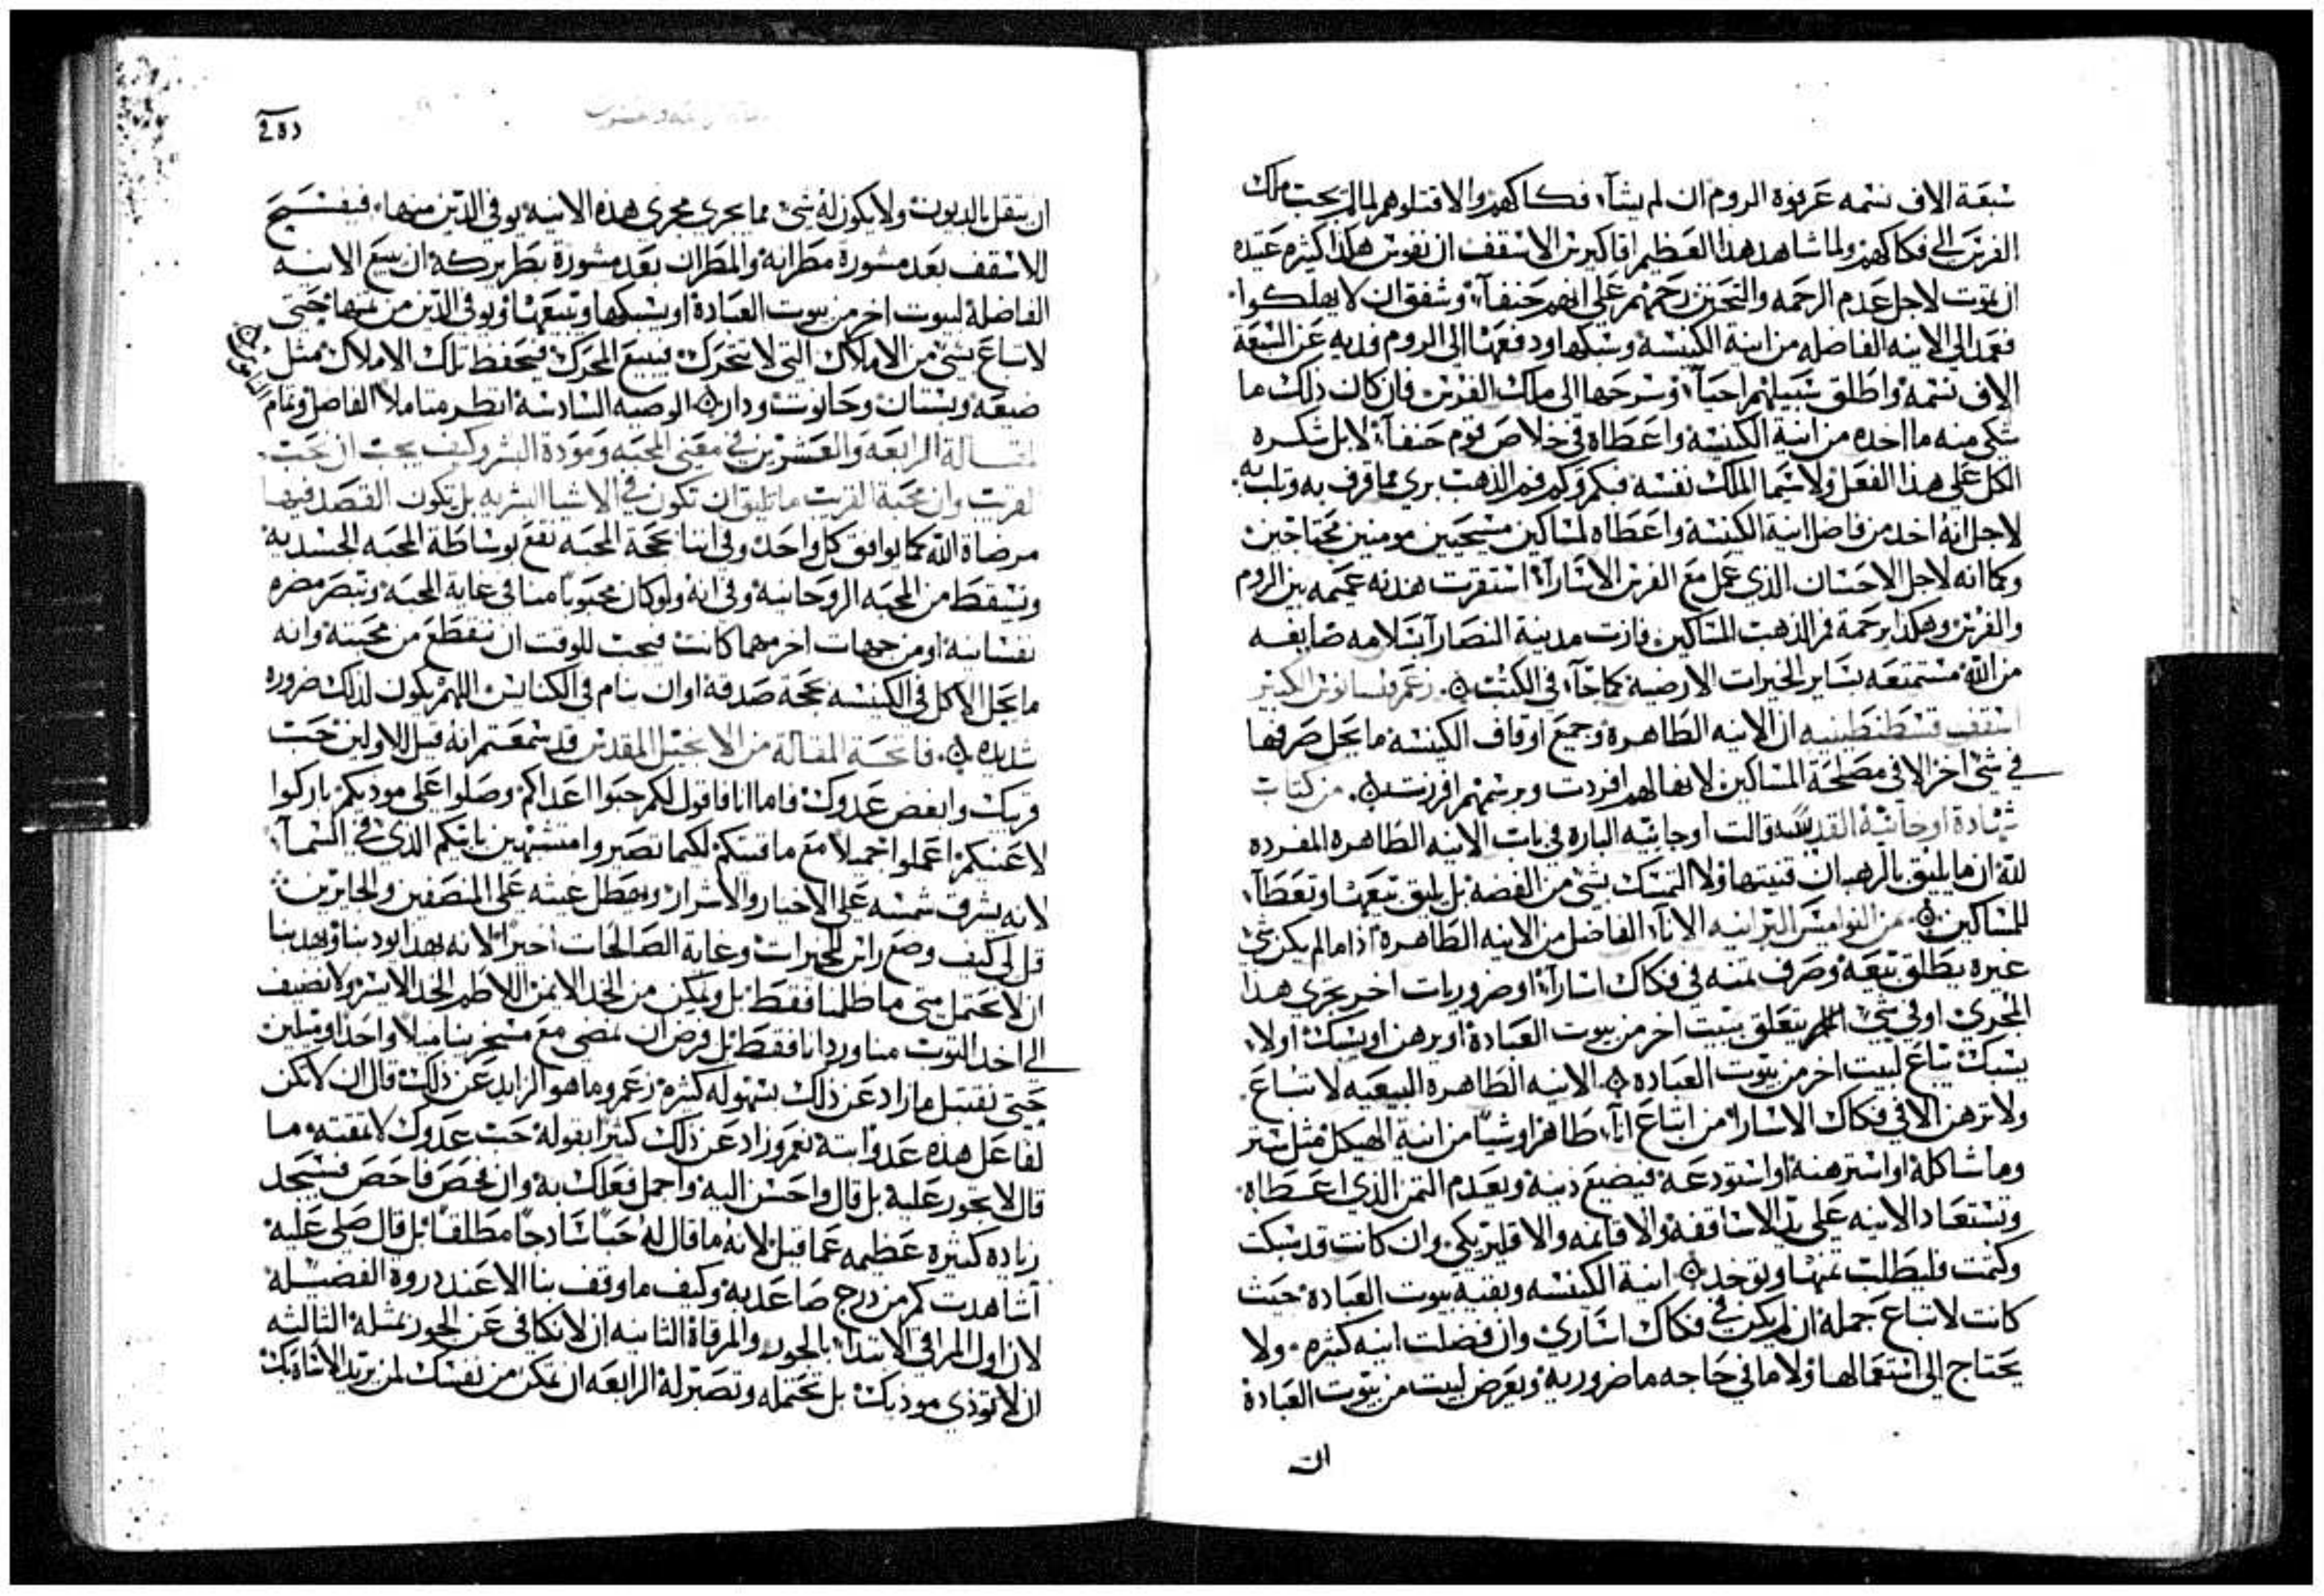 سبعة الاف نسمه عرفوه الروم ان لم يشآء فكاكهم والا قتلوهم لما لم يجب ملك
الفرس الى فكاكهم ولما شاهد هذا العظيم اقاكيوس الاسقف ان نفوس هكذا كثيره عتيده
ان تموت لاجل عدم الرحمه والتحنن رحمهم على انهم حنفآء وشفق ان لا يهلكوا
فعمد الى الانيه الفاضله من انية الكنيسة وسبكها ودفعها الى الروم فديه عن السبعة
الاف نسمه واطلق سبيلهم احيآء وسرحها الى ملك الفرس فان كان ذلك ما
شكي منه ما اخده من انية الكنيسه واعطاه في خلاص قوم حنفآء لا بل شكره
الكل على هذا الفعل ولا سيما الملك نفسه فبكم وكم فم الذهب بري مما قرف به وتلب به
لاجل انه اخد من فاضل انية الكنيسه واعطاه لمساكين مسيحيين مومنين محتاجين
وكما انه لاجل الاحسان الذي عمل مع الفرس الاسارآء استقرت هدنه عميمه بين الروم
والفرس وهكذا برحمة فم الذهب المساكين فازت مدينة النصارآ بسلامه صايفه
من الله مستمتعه بساير الخيرات الارضيه كما جآء في الكتب ۞ زعم فنسانوس الكبير
اسقف قسطنطينيه ان الانيه الطاهره وجميع اوقاف الكنيسه ما يحل صرفها
في شي اخر الا في مصلحة المساكين لانها لهم افردت وبرسمهم افرزت ۞ من كتاب
شهادة اوجانيه القديسه قالت اوجانيه الباره في باب الانيه الطاهره المفرده
لله ان ما يليق بالرهبان قنيتها ولا التمسك بشي من الفضه بل يليق بيعها وتعطآء
للمساكين ۞ من النواميس البرانيه الانآء الفاضل من الانيه الطاهره اذا ما لم يكن شي
غيره يطلق بيعه وصرف تمنه في فكاك اسارآء او ضروريات اخر يجري هذا
المجري او في شي يتعلق ببيت اخر من بيوت العبادة او يرهن او يسبك اولا
يسبك يباع لبيت اخر من بيوت العباده ۞ الانيه الطاهره البيعيه لا تباع
ولا ترهن الا في فكاك الاسارآ من ابتاع انآء طاهرا او شيا من انية الهيكل مثل ستر
وما شاكله او استرهنه او استودعه فيضيع دينه ويعدم التمن الذي اعطاه
وتستعاد الانيه على يد الاساقفه والاقانمه والاقليريكي وان كانت قد سبكت
وكتمت فليطلب تمنها ويوخد ۞ انية الكنيسه وبقية بيوت العبادة حيث
كانت لا تباع جمله ان لم يكن في فكاك اساري وان فضلت انيه كثيره ولا
يحتاج الى استعمالها ولا ما في حاجه ما ضروريه ويعرض لبيت من بيوت العبادة
ان
ان يتقل بالديون ولا يكون له شي مما يجري مجري هذه الانيه يوفي الدين منها فيفسح
للاسقف بعد مشورة مطرانه والمطران بعد مشورة بطريركه ان يبيع الانيه
الفاضله لبيوت اخر من بيوت العبادة او يسبكها ويبيعها ويوفي الدين من تمنها حتى
لا يباع شي من الاملاك التي لا تتحرك فيبيع المحرك فيحفظ تلك الاملاك مثل
ضيعه وبستان وحانوت ودار ۞ الوصيه السادسه انظر متاملا الفاضل وتمام
المقالة الرابعه والعشرين في معني المحبه ومودة البشر وكيف يجب ان نحب
القريب وان محبة القريب ما تليق ان تكون في الاشيا البشريه بل تكون القصد فيها
مرضاة الله كما يوافق كل واحد وفي اننا بحجة المحبه نقع بوساطة المحبه الجسديه
ونسقط من المحبه الروحانيه وفي انه ولو كان محبوبا منا في غاية المحبه ونبصر مضره
نفسانيه او من جهات اخر مهما كانت فيجب للوقت ان ننقطع من محبته وانه
ما يحل الاكل في الكنيسه بحجة صدقة او ان ينام في الكنايس اللهم يكون لذلك ضروره
شديده ۞ فاتحة المقالة من الانجيل المقدس قد سمعتم انه قيل للاولين حب
قريبك وابغض عدوك فاما انا فاقول لكم حبوا اعداكم وصلوا على موذيكم باركوا
لاعنيكم اعملوا جميلا مع ماقتيكم لكيما تصيروا متشبهين بابيكم الذي في السمآء
لانه يشرق شمسه على الاخيار والاشرار ويهطل غيثه على المنصفين والجايرين
قل لي كيف وضع راس الخيرات وغاية الصالحات اخيرا لانه بهذا يودبنا ويهدينا
ان لا نحتمل متي ما ظلمنا فقط بل ونمكن من الخد الايمن اللاطم الخد الايسر ولا نضيف
الى اخد التوب منا وردانا فقط بل وفرض ان نمضي مع مسخرينا ميلا واحدا وميلين
حتى نقتبل ما زاد عن ذلك بسهوله كثيره زعم وما هو الزايد عن ذلك قال ان لا نكن
لفاعل هذه عدوا بتة نعم وزاد عن ذلك كثيرا بقوله حب عدوك لا تمقته ما
قال لا تجور عليه بل قال واحسن اليه واجمل فعلك به وان تفحص فاحص فسيجد
زياده كثيره عظيمه عما قيل لانه ما قال له حبا سادجا مطلقا بل قال صلي عليه
اشاهدت كم من درج صاعد به وكيف ما وقف بنا الا عند دروة الفضيله
لان اول المراقي الابتدآ بالجور والمرقاة التانيه ان لا نكافي عن الجور بمثله التالثه
ان لا توذي موذيك بل تحتمله وتصبر له الرابعه ان تمكن من نفسك لمن يريد الاساه بك